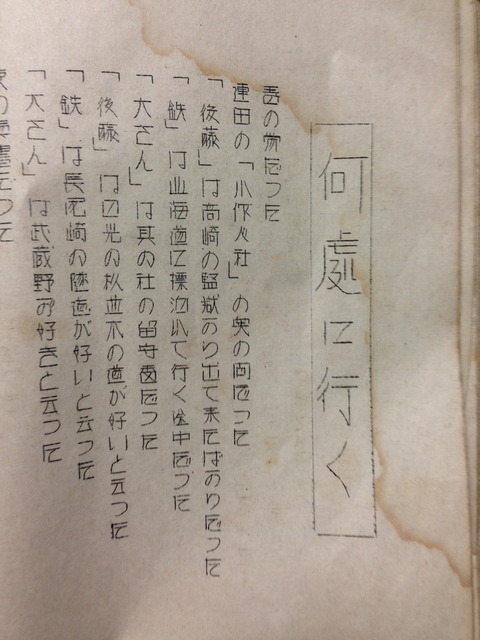 何處に行く
の宵だつた
蓮田の「小作人社」の奥の間だつた
「後藤」は高崎の監獄から出て来たばかりだつた
「鉄」は北海道に漂泊れて行く途中だつた
「大さん」は其の社の留守番だつた
「後藤」は日光の杉並木の道が好いと云つた
「鉄」は長の隧道が好いと云つた
「大さん」は武蔵野が好きと云つた
だつた